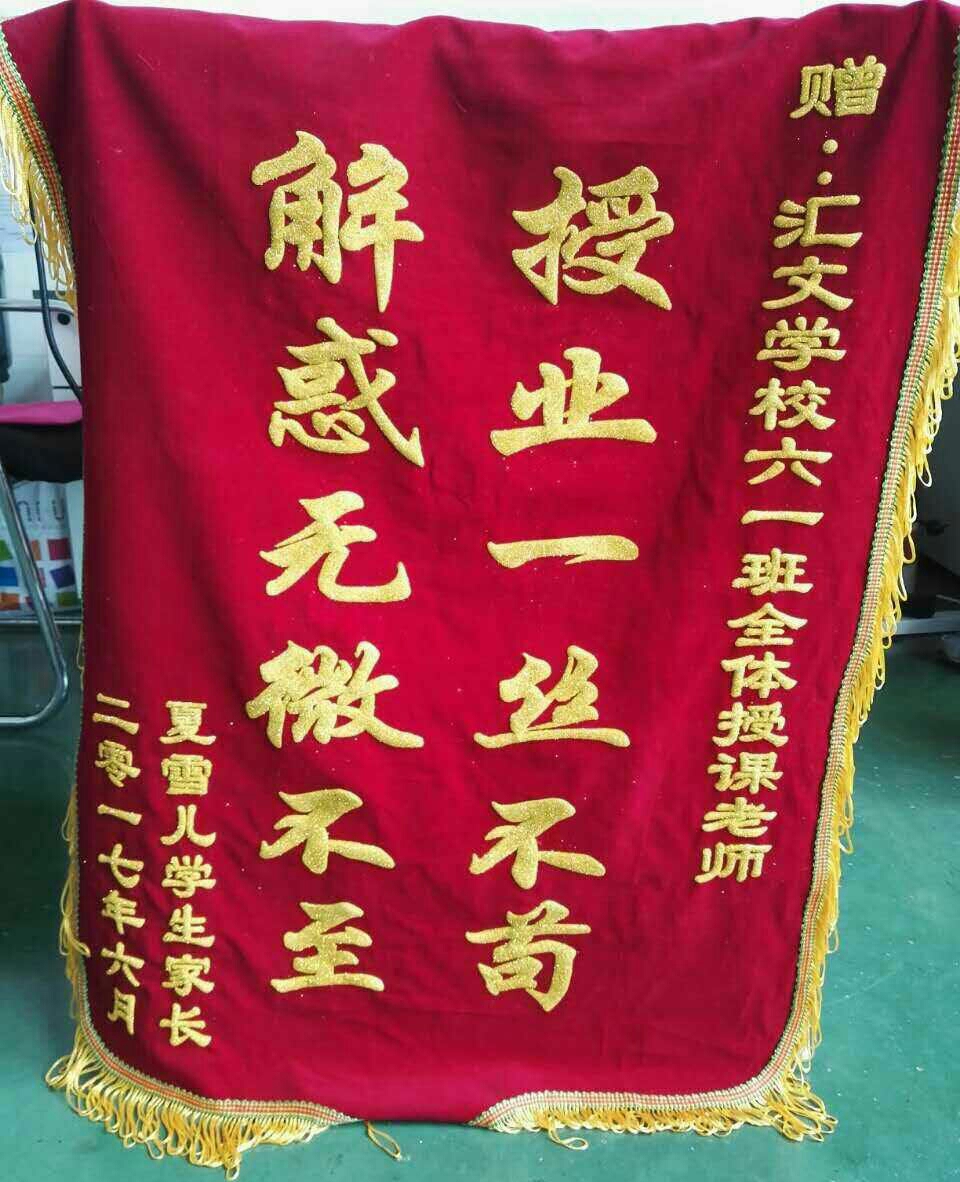 赠：汇文学校六一班全体授课老师
授业一丝不苟
解惑无微不至
夏雪儿学生家长
二零一七年六月